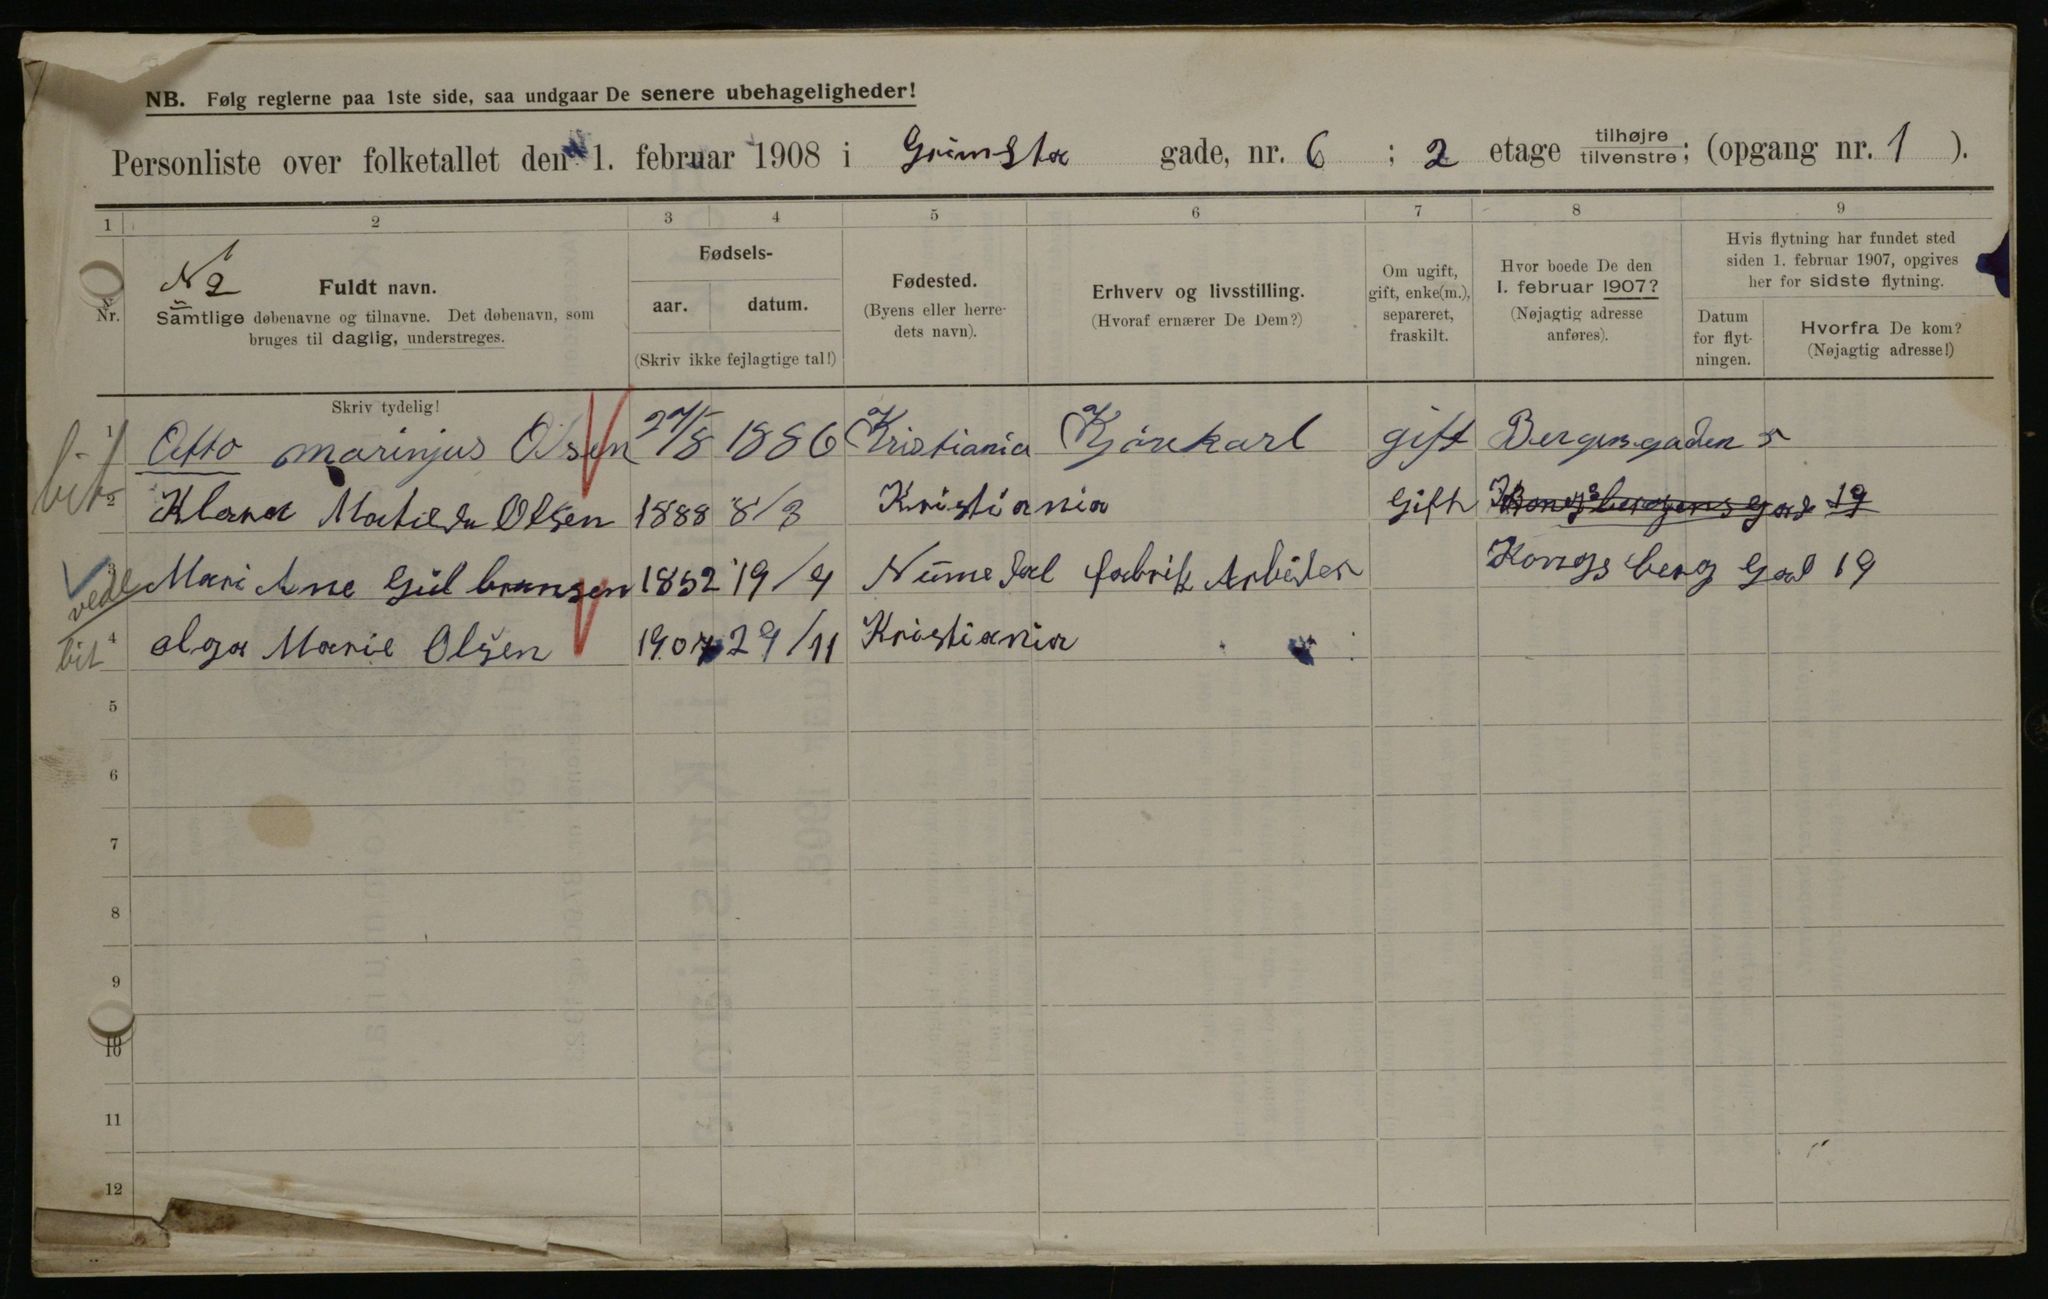 NB. Følg reglerne paa 1ste side, saa undgaar De senere ubehageligheder!
Personliste over folketallet den 1. februar 1908 i Grimsta gade, nr. 6 ; 2 etage tilhøjre tilvenstre; (opgang nr. 1 ).
1 2 3 4 5 6 7 8 9
Nr.
N 1
2
Fuldt navn.
Samtlige døbenavne og tilnavne. Det døbenavn, som
bruges til daglig, understreges.
Skriv tydelig!
Fødsels-
aar. datum.
(Skriv ikke fejlagtige tal!)
Fødested.
(Byens eller herre-
dets navn).
Erhverv og livsstilling.
(Hvoraf ernærer De Dem?)
Om ugift,
gift, enke(m.),
separeret,
fraskilt.
Hvor boede De den
1. februar 1907?
(Nøjagtig adresse
anføres).
Hvis flytning har fundet sted
siden 1. februar 1907, opgives
her for sidste flytning.
Datum
for flyt-
ningen.
Hvorfra De kom?
(Nøjagtig adresse!)
bit 1 Otto Marinjus Olsen 27/8 1886 Kristiania Kjörekarl gift Bergensgaden 5
bit 2 Klara Matilda Olsen 1888 8/3 Kristiania Gift Kongsbergens Gad 19
vedl 3 Mari Ane Gülbransen 1852 19/4 Nümedal fabrik Arbeider Kongsberg Gad 19
bit 4 olga Marie Olsen 1907 29/11 Kristiania
5
6
7
8
9
10
11
12